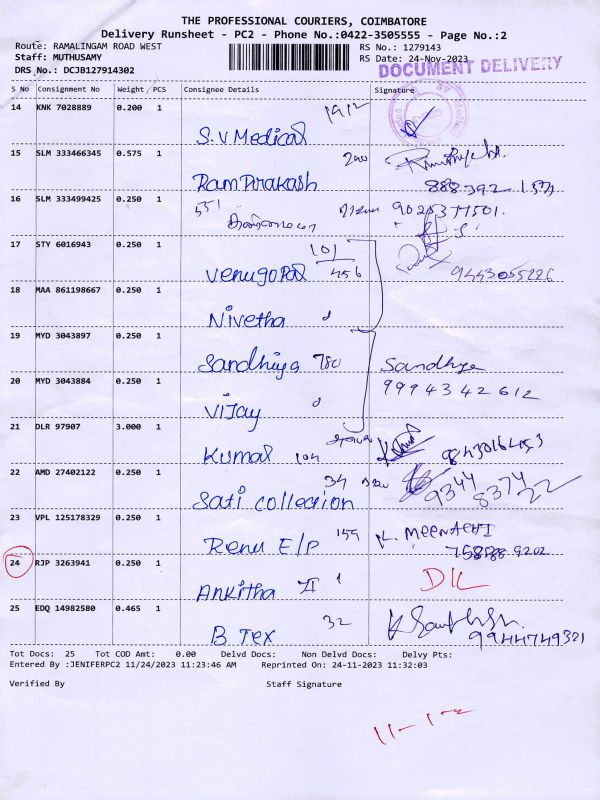 THE PROFESSIONAL COURIERS, COIMBATORE
Delivery Runsheet - PC2 - Phone No.:0422-3505555 - Page No.:2
Route: RAMALINGAM ROAD WEST RS No.: 1279143
Staff: MUTHUSAMY RS Date: 24-Nov-2023
DRS No.: DCJB127914302 DOCUMENT DELIVERY
S No Consignment No Weight/ PCS Consignee Details Signature
14 KNK 7028889 0.200 1 1912
S.V Medical
15 SLM 333466345 0.575 1 200
Ram Prakash
16 SLM 333499425 0.250 1 551 9025377501.
17 STY 6016943 0.250 1 101
Venugopal 456 9443055226
18 MAA 861198667 0.250 1
Nivetha
19 MYD 3043897 0.250 1
Sandhiya 780 Sandhya
20 MYD 3043884 0.250 1 9994342612
Vijay
21 DLR 97907 3.000 1
Kumar 104
22 AMD 27402122 0.250 1 34 9344
Sati collection 837422
23 VPL 125178329 0.250 1 159 K. MEENACHI
Renu E/P
24 RJP 3263941 0.250 1 D/L
Ankitha II 1
25 EDQ 14982580 0.465 1 32
B Tex 9944749321
Tot Docs: 25 Tot COD Amt: 0.00 Delvd Docs: Non Delvd Docs: Delvy Pts:
Entered By :JENIFERPC2 11/24/2023 11:23:46 AM Reprinted On: 24-11-2023 11:32:03
Verified By Staff Signature